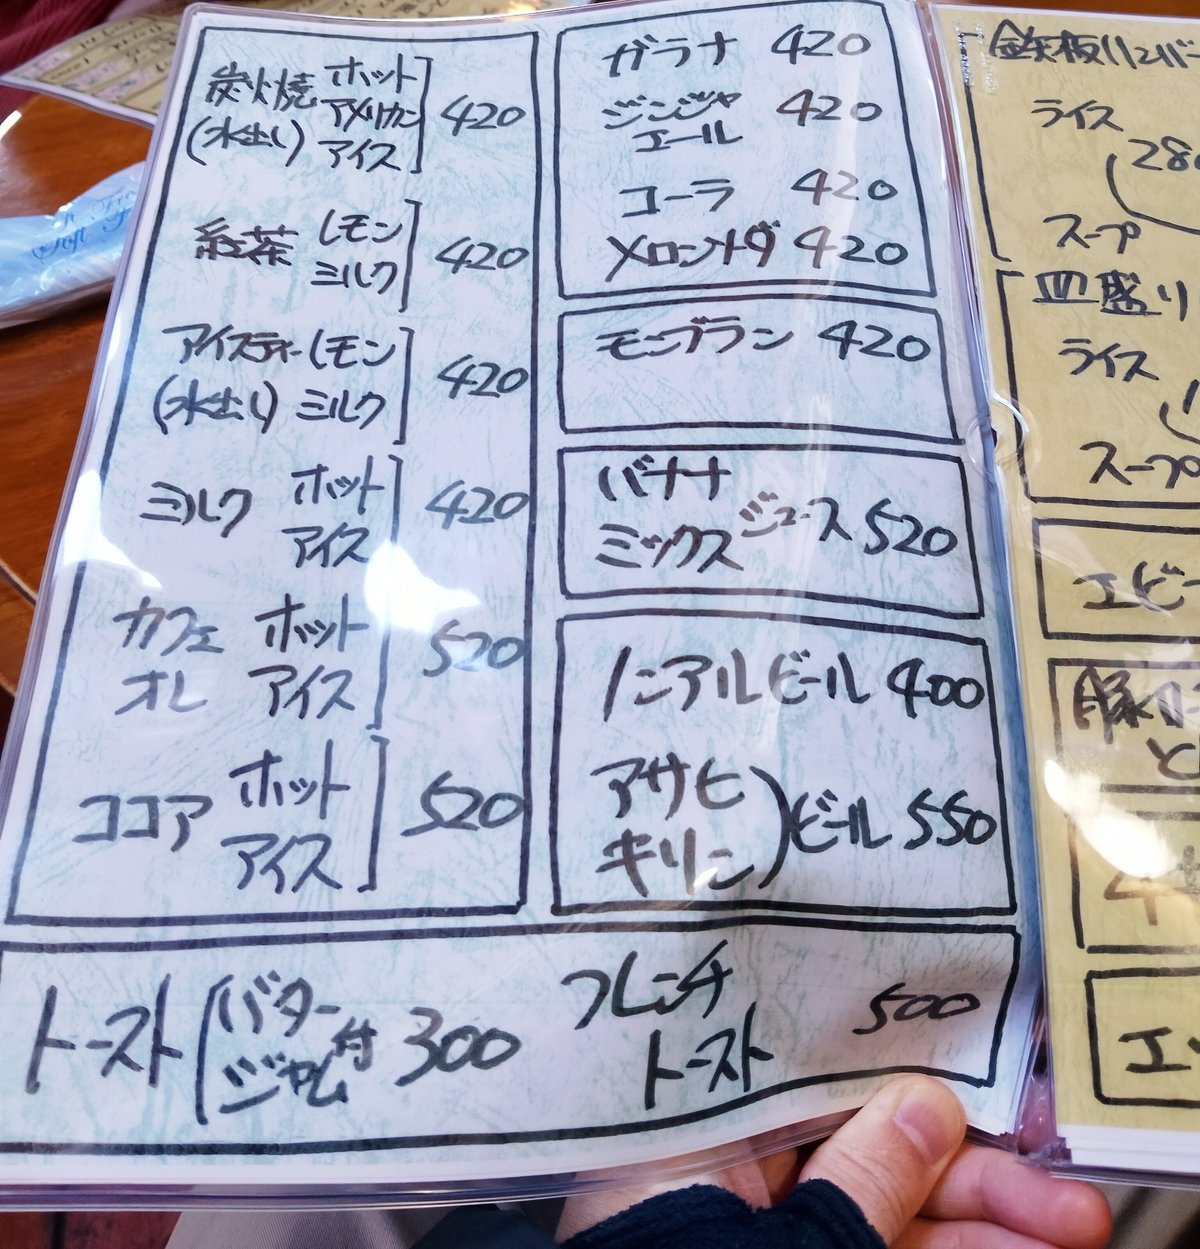 炭火焼 ホット
アメリカン 420
(水出し) アイス
紅茶 レモン
ミルク 420
アイスティー レモン
(水出し) ミルク 420
ミルク ホット
アイス 420
カフェ ホット
オレ アイス 520
ココア ホット
アイス 520
ガラナ 420
ジンジャ
エール 420
コーラ 420
メロンソーダ 420
モンブラン 420
バナナ
ミックス ジュース 520
ノンアルビール 400
アサヒ
キリン ビール 550
トースト バター
ジャム 付 300
フレンチ
トースト 500
鉄板ハンバー
ライス
スープ
皿盛り
ライス
スープ
エビ
と
エ